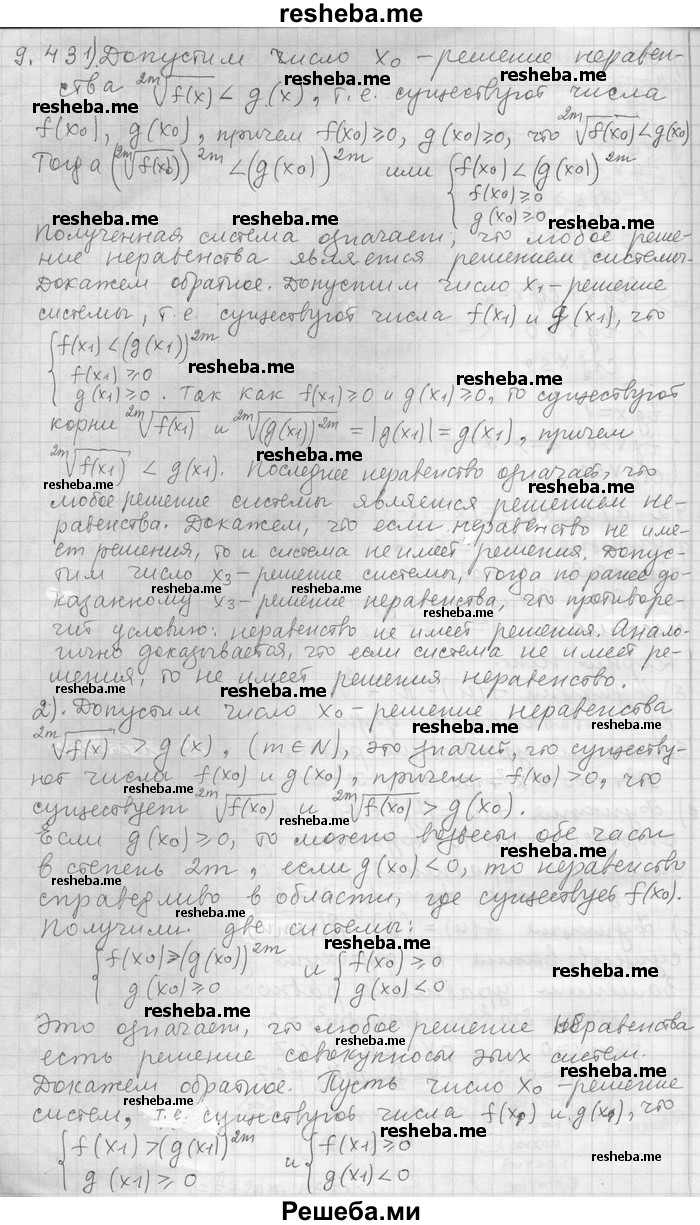 resheba.me
9.431) Допустим число x₀ – решение неравен-
ства ²ᵐ√f(x) < g(x), т.е. существуют числа
f(x₀), g(x₀), причем f(x₀) ≥ 0, g(x₀) ≥ 0, что ²ᵐ√f(x₀) < g(x₀)
Тогда (²ᵐ√f(x₀))²ᵐ < (g(x₀))²ᵐ или { f(x₀) < (g(x₀))²ᵐ
f(x₀) ≥ 0
g(x₀) ≥ 0
Полученная система означает, что любое реше-
ние неравенства является решением системы.
Докажем обратное. Допустим число x₁ – решение
системы, т.е. существуют числа f(x₁) и g(x₁), что
{ f(x₁) < (g(x₁))²ᵐ
f(x₁) ≥ 0
g(x₁) ≥ 0. Так как f(x₁) ≥ 0 и g(x₁) ≥ 0, то существуют
корни ²ᵐ√f(x₁) и ²ᵐ√(g(x₁))²ᵐ = |g(x₁)| = g(x₁), причем
²ᵐ√f(x₁) < g(x₁). Последнее неравенство означает, что
любое решение системы является решением не-
равенства. Докажем, что если неравенство не име-
ет решения, то и система не имеет решения. Допус-
тим число x₃ – решение системы, тогда по ранее до-
казанному x₃ – решение неравенства, что противоре-
чит условию: неравенство не имеет решения. Анало-
гично доказывается, что если система не имеет ре-
шения, то не имеет решения неравенство.
2). Допустим число x₀ – решение неравенства
²ᵐ√f(x) > g(x), (m∈N), это значит, что существу-
ют числа f(x₀) и g(x₀), причем f(x₀) > 0, что
существует ²ᵐ√f(x₀) и ²ᵐ√f(x₀) > g(x₀).
Если g(x₀) ≥ 0, то можно возвести обе части
в степень 2m, если g(x₀) < 0, то неравенство
справедливо в области, где существует f(x₀).
Получили две системы:
{ f(x₀) ≥ (g(x₀))²ᵐ и { f(x₀) ≥ 0
g(x₀) ≥ 0 g(x₀) < 0
Это означает, что любое решение неравенства
есть решение совокупности этих систем.
Докажем обратное. Пусть число x₀ – решение
систем, т.е. существуют числа f(x₁) и g(x₁), что
{ f(x₁) > (g(x₁))²ᵐ и { f(x₁) ≥ 0
g(x₁) ≥ 0 g(x₁) < 0
Решеба.ми